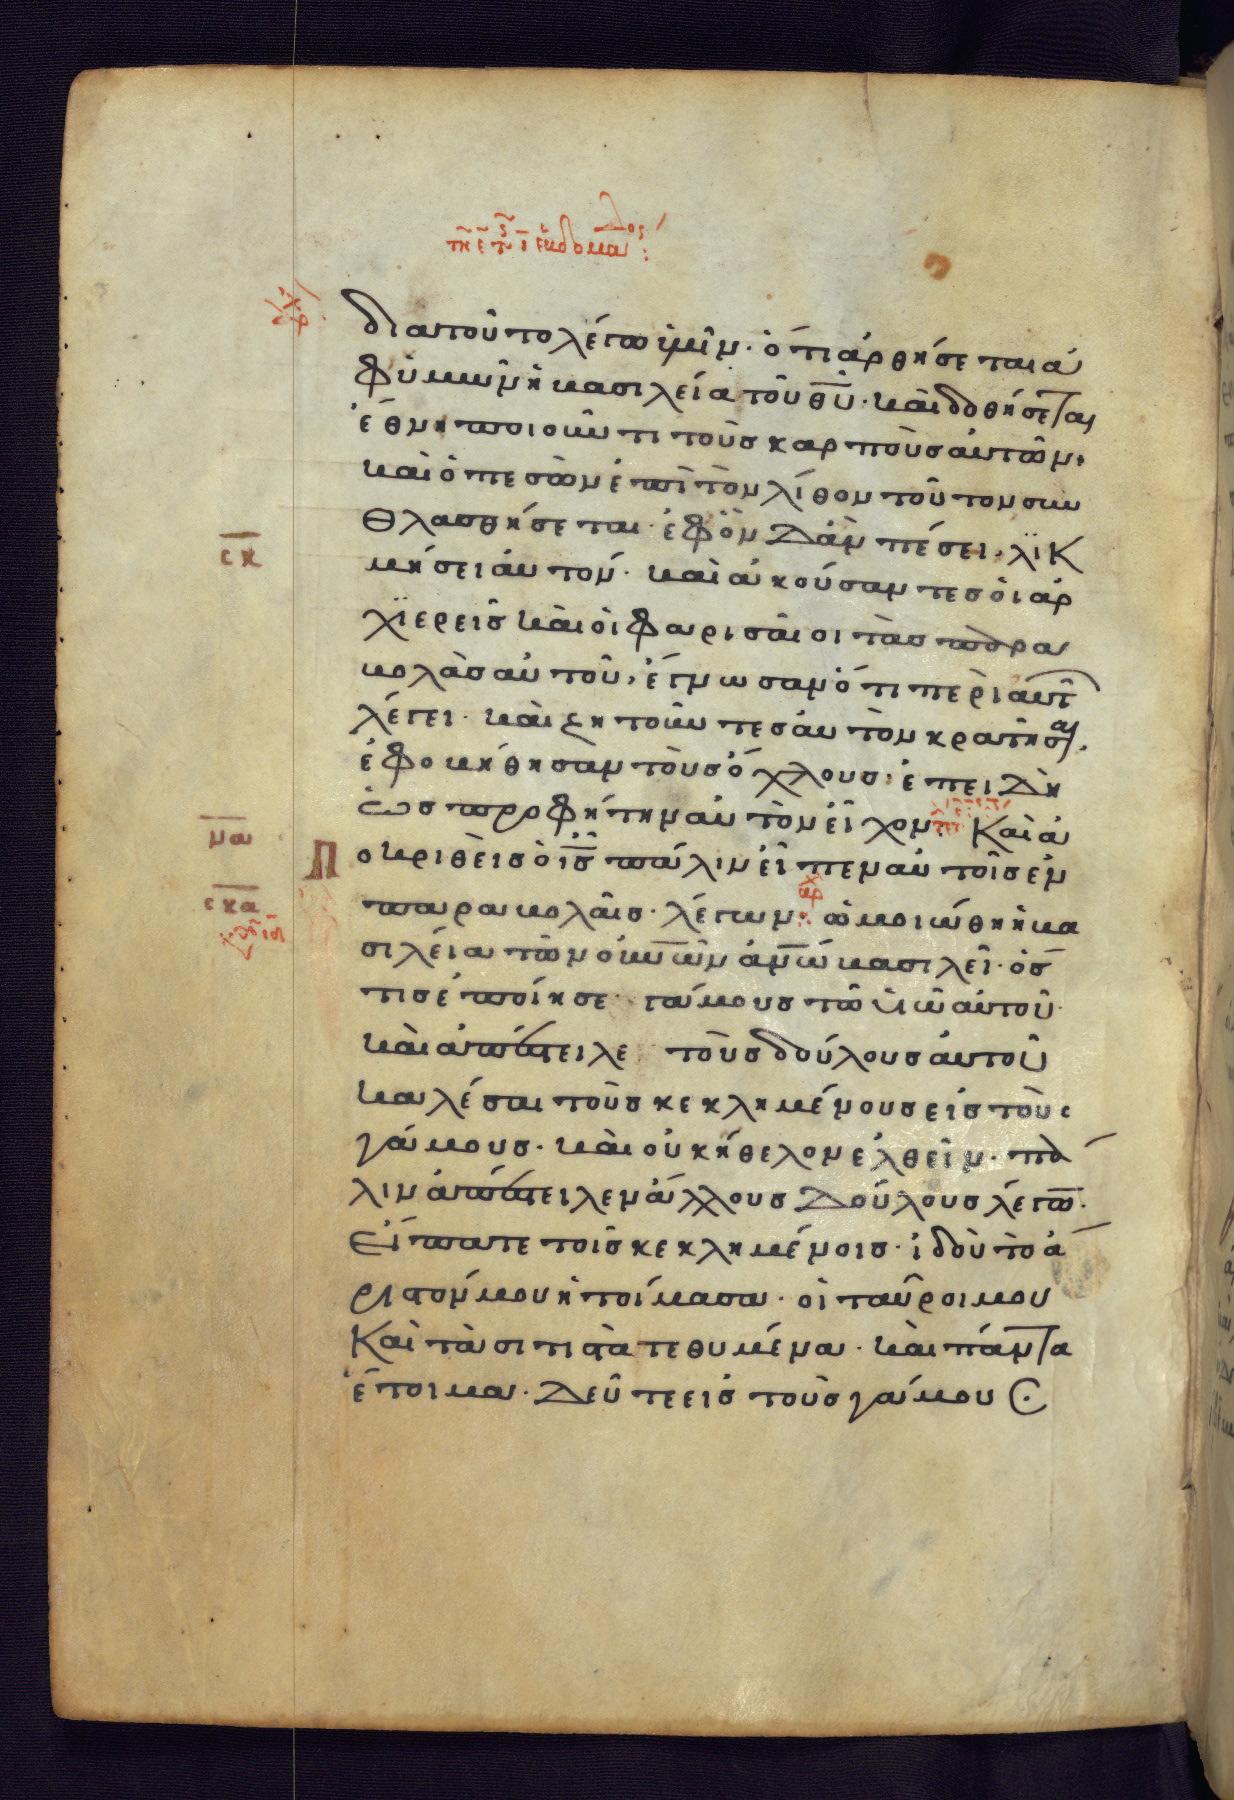 διατοῦτο λέγω ὑμῖν· ὅτι ἀρθήσεται ἀ
φ ὑμῶν ἡ βασιλεία τοῦ θ̅υ̅· καὶ δοθήσεται
ἔθνη ποιοῦντι τοὺς καρποὺς αὐτῶν·
καὶ ὁ πεσὼν ἐπὶ τὸν λίθον τοῦτον συν
θλασθήσεται· ἐφ ὃν δ ἂν πέσει, λικ
μήσει αὐτόν· καὶ ἀκούσαντες οἱ ἀρ
χϊερεῖς καὶ οἱ φαρισαῖοι τὰς παρα
βολὰς αὐτοῦ, ἔγνωσαν ὅτι περὶ αὐτ
λέγει· καὶ ζητοῦντες αὐτὸν κρατῆσαι,
ἐφοβήθησαν τοὺς ὄχλους, ἐπειδὴ
ὡς προφήτην αὐτὸν εἶχον· Καὶ ἀ
Ποκριθεὶς ὁ ι̅ς̅ πάλιν εἶπεν αὐτοῖς ἐν
παραβολαῖς· λέγων· ὡμοιώθη ἡ βα
σιλεία τῶν ο̅υ̅ν̅ω̅ν ἀ̅ν̅ω̅ βασιλεῖ· ὅσ
τις ἐποίησε γάμους τῶ υἱῶ αὐτοῦ·
καὶ ἀπέστειλε τοὺς δούλους αὐτοῦ
καλέσαι τοὺς κεκλημένους εἰς τοὺς
γάμους· καὶ οὐκ ἤθελον ἐλθεῖν· πά
λιν ἀπέστειλεν ἄλλους δούλους λέγω̅·
Εἴπατε τοῖς κεκλημένοις· ἰδοὺ τὸ ἄ
ριστόν μου ἡτοίμασα· οἱ ταῦροι μου
Καὶ τὰ σιτιστὰ τεθυμένα· καὶ πάντα
ἕτοιμα· Δεῦτε εἰς τοὺς γάμους·
σ̅κ̅
μ̅α̅
σ̅κ̅α̅